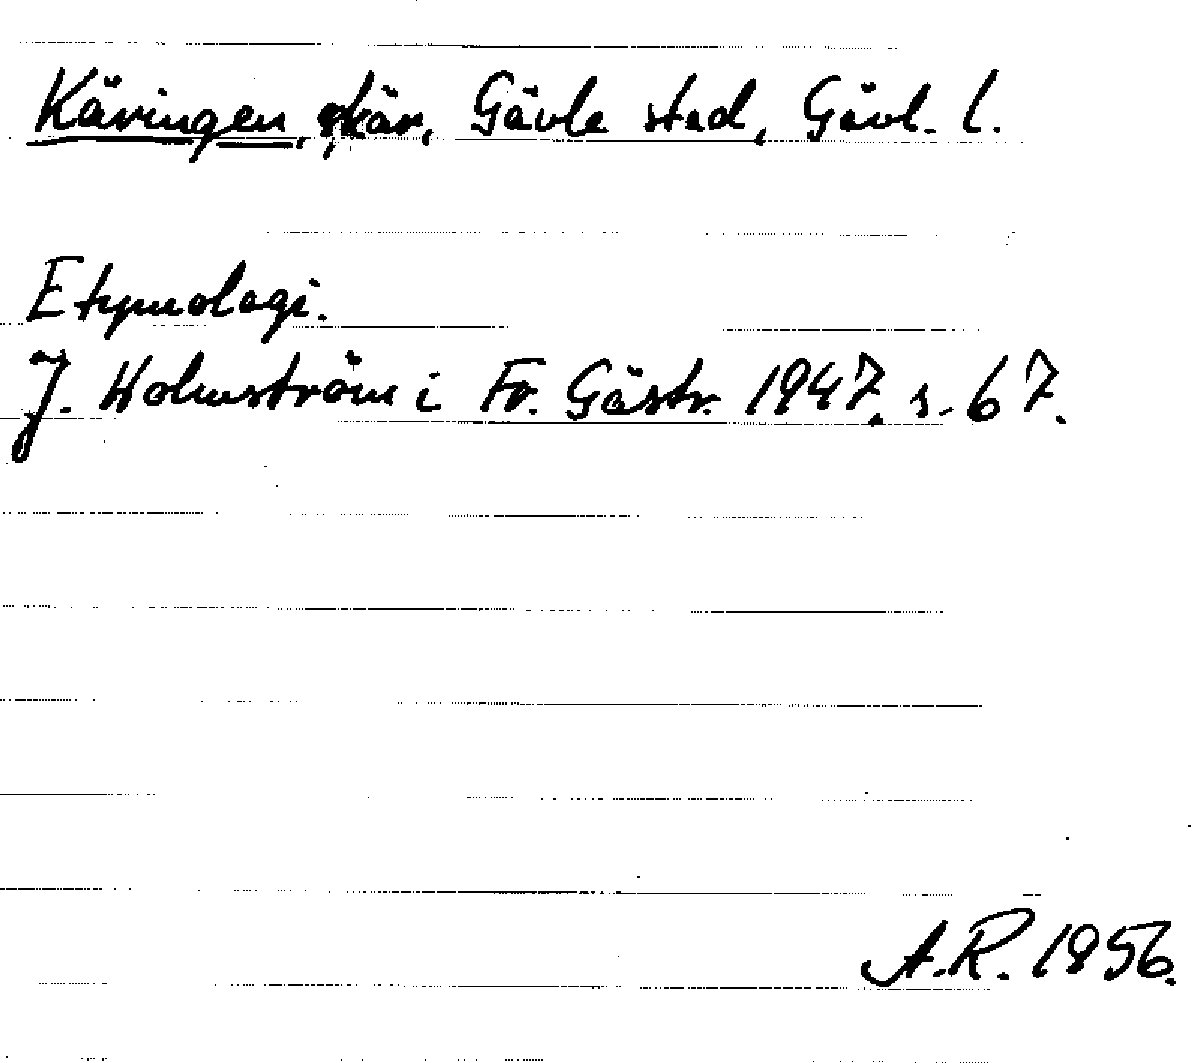 Käringen, skär, Gävle stad, Gävl. l.
Etymologi.
J. Holmström i Fr. Gästr. 1947. s. 67.
A.R. 1956.